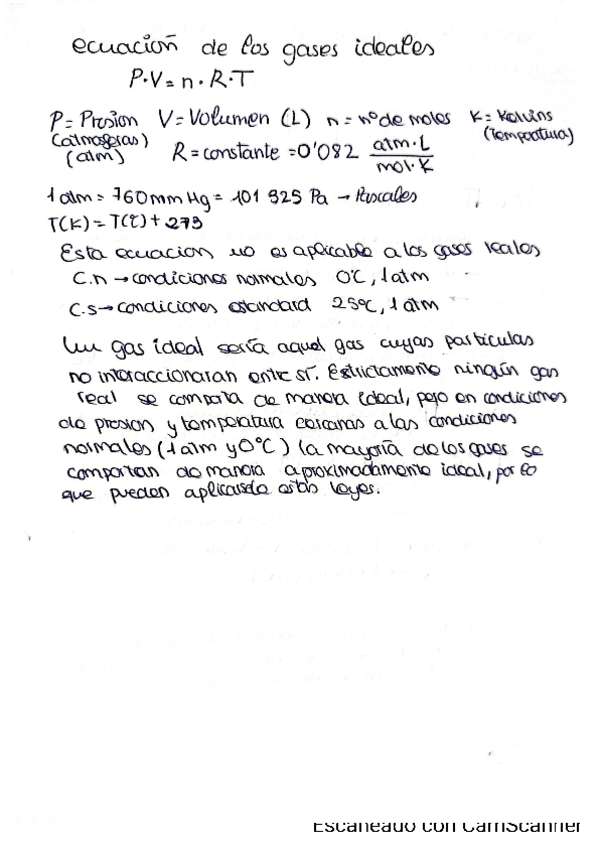 ecuación de los gases ideales
P·V = n·R·T
P = Presion V = Volumen (L) n = nº de moles K = Kelvins
(atmosferas) (Temperatura)
(atm) R = constante = 0'082 atm·L / mol·K
1 atm = 760 mm Hg = 101 325 Pa → Pascales
T(K) = T(℃) + 273
Esta ecuacion no es aplicable a los gases reales
C.n → condiciones normales 0℃, 1 atm
C.s → condiciones estandard 25ºC, 1 atm
Un gas ideal sería aquel gas cuyas particulas
no interaccionaran entre sí. Estrictamente ningún gas
real se comporta de manera ideal, pero en condiciones
de presion y temperatura cercanas a las condiciones
normales (1 atm y 0ºC) la mayoría de los gases se
comportan de manera aproximadamente ideal, por lo
que pueden aplicarsele estas leyes.
Escaneado con CamScanner